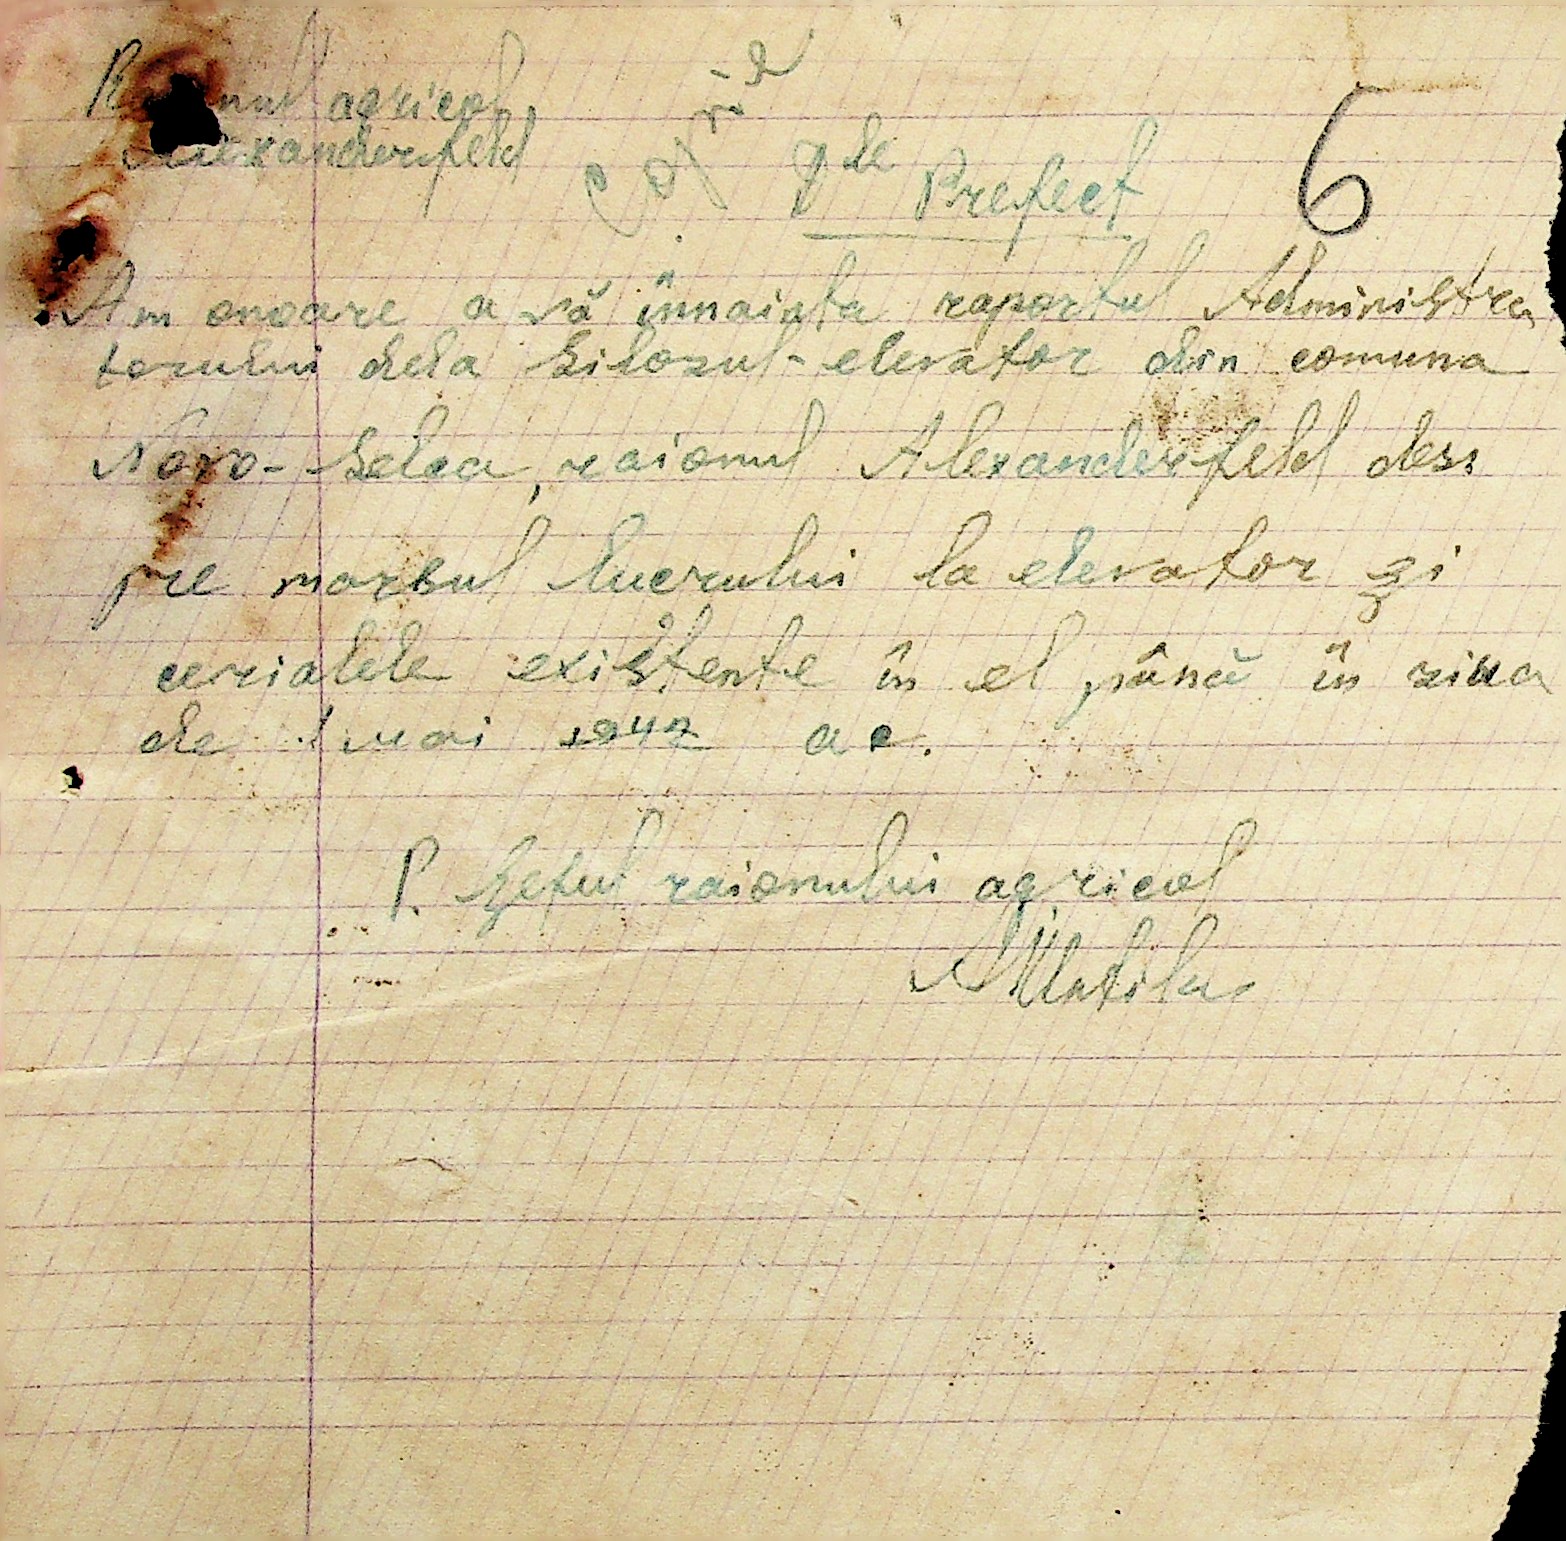 agricol
Alexanderfeld
Dle Prefect
6
Am onoare a vă înnainta raportul Administra
torului dela Silosul-elevator din comuna
Novo-Selca, raionul Alexanderfeld des
pre morsul lucrului la elevator și
cerialele existente în el până în ziua
de 1 Mai 1942 ac.
P. Șeful raionului agricol